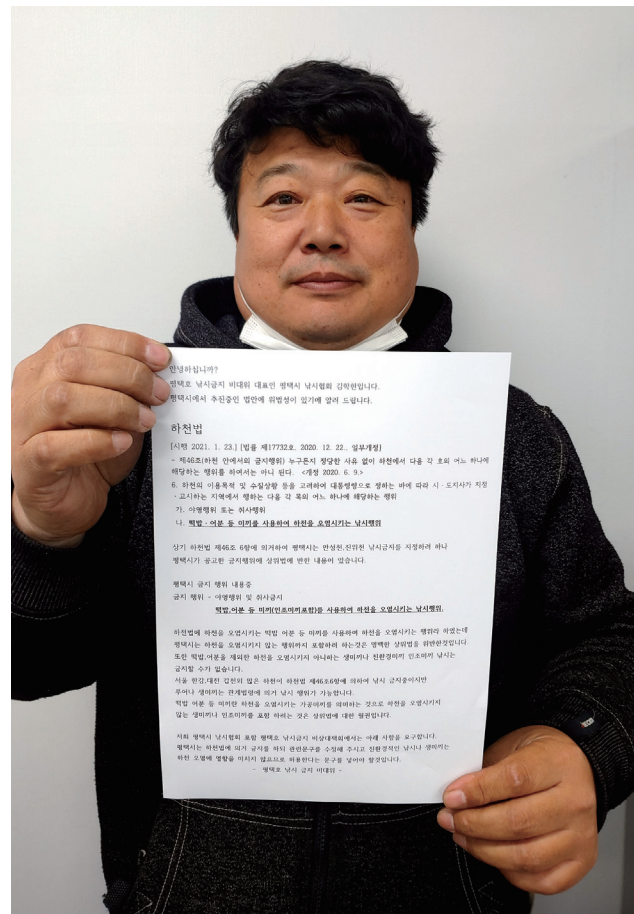 안녕하십니까?
평택호 낚시금지 비대위 대표인 평택시 낚시협회 김학현입니다.
평택시에서 추진중인 법안에 위법성이 있기에 알려 드립니다.
하천법
[시행 2021. 1. 23.] [법률 제17732호, 2020. 12. 22., 일부개정]
- 제46조(하천 안에서의 금지행위) 누구든지 정당한 사유 없이 하천에서 다음 각 호의 어느 하나에
해당하는 행위를 하여서는 아니 된다. <개정 2020. 6. 9.>
6. 하천의 이용목적 및 수질상황 등을 고려하여 대통령령으로 정하는 바에 따라 시ㆍ도지사가 지정
ㆍ고시하는 지역에서 행하는 다음 각 목의 어느 하나에 해당하는 행위
가. 야영행위 또는 취사행위
나. 떡밥ㆍ어분 등 미끼를 사용하여 하천을 오염시키는 낚시행위
상기 하천법 제46조 6항에 의거하여 평택시는 안성천,진위천 낚시금지를 지정하려 하나
평택시가 공고한 금지행위에 상위법에 반한 내용이 있습니다.
평택시 금지 행위 내용중
금지 행위 - 야영행위 및 취사금지
떡밥,어분 등 미끼(인조미끼포함)를 사용하여 하천을 오염시키는 낚시행위.
하천법에 하천을 오염시키는 떡밥 어분 등 미끼를 사용하여 하천을 오염시키는 행위라 하였는데
평택시는 하천을 오염시키지 않는 행위까지 포함하려 하는것은 명백한 상위법을 위반한것입니다.
또한 떡밥,어분을 제외한 하천을 오염시키지 아니하는 생미끼나 친환경미끼 인조미끼 낚시는
금지할 수가 없습니다.
서울 한강,대전 갑천의 많은 하천이 하천법 제46조6항에 의하여 낚시 금지중이지만
루어나 생미끼는 관계법령에 의거 낚시 행위가 가능합니다.
떡밥 어분 등 미끼란 하천을 오염시키는 가공미끼를 의미하는 것으로 하천을 오염시키지
않는 생미끼나 인조미끼를 포함 하려는 것은 상위법에 대한 월권입니다.
저희 평택시 낚시협회 포함 평택호 낚시금지 비상대책회에서는 아래 사항을 요구합니다.
평택시는 하천법에 의거 금지를 하되 관련문구를 수정해 주시고 친환경적인 낚시나 생미끼는
하천 오염에 영향을 미치지 않으므로 허용한다는 문구를 넣어야 할것입니다.
- 평택호 낚시 금지 비대위 -